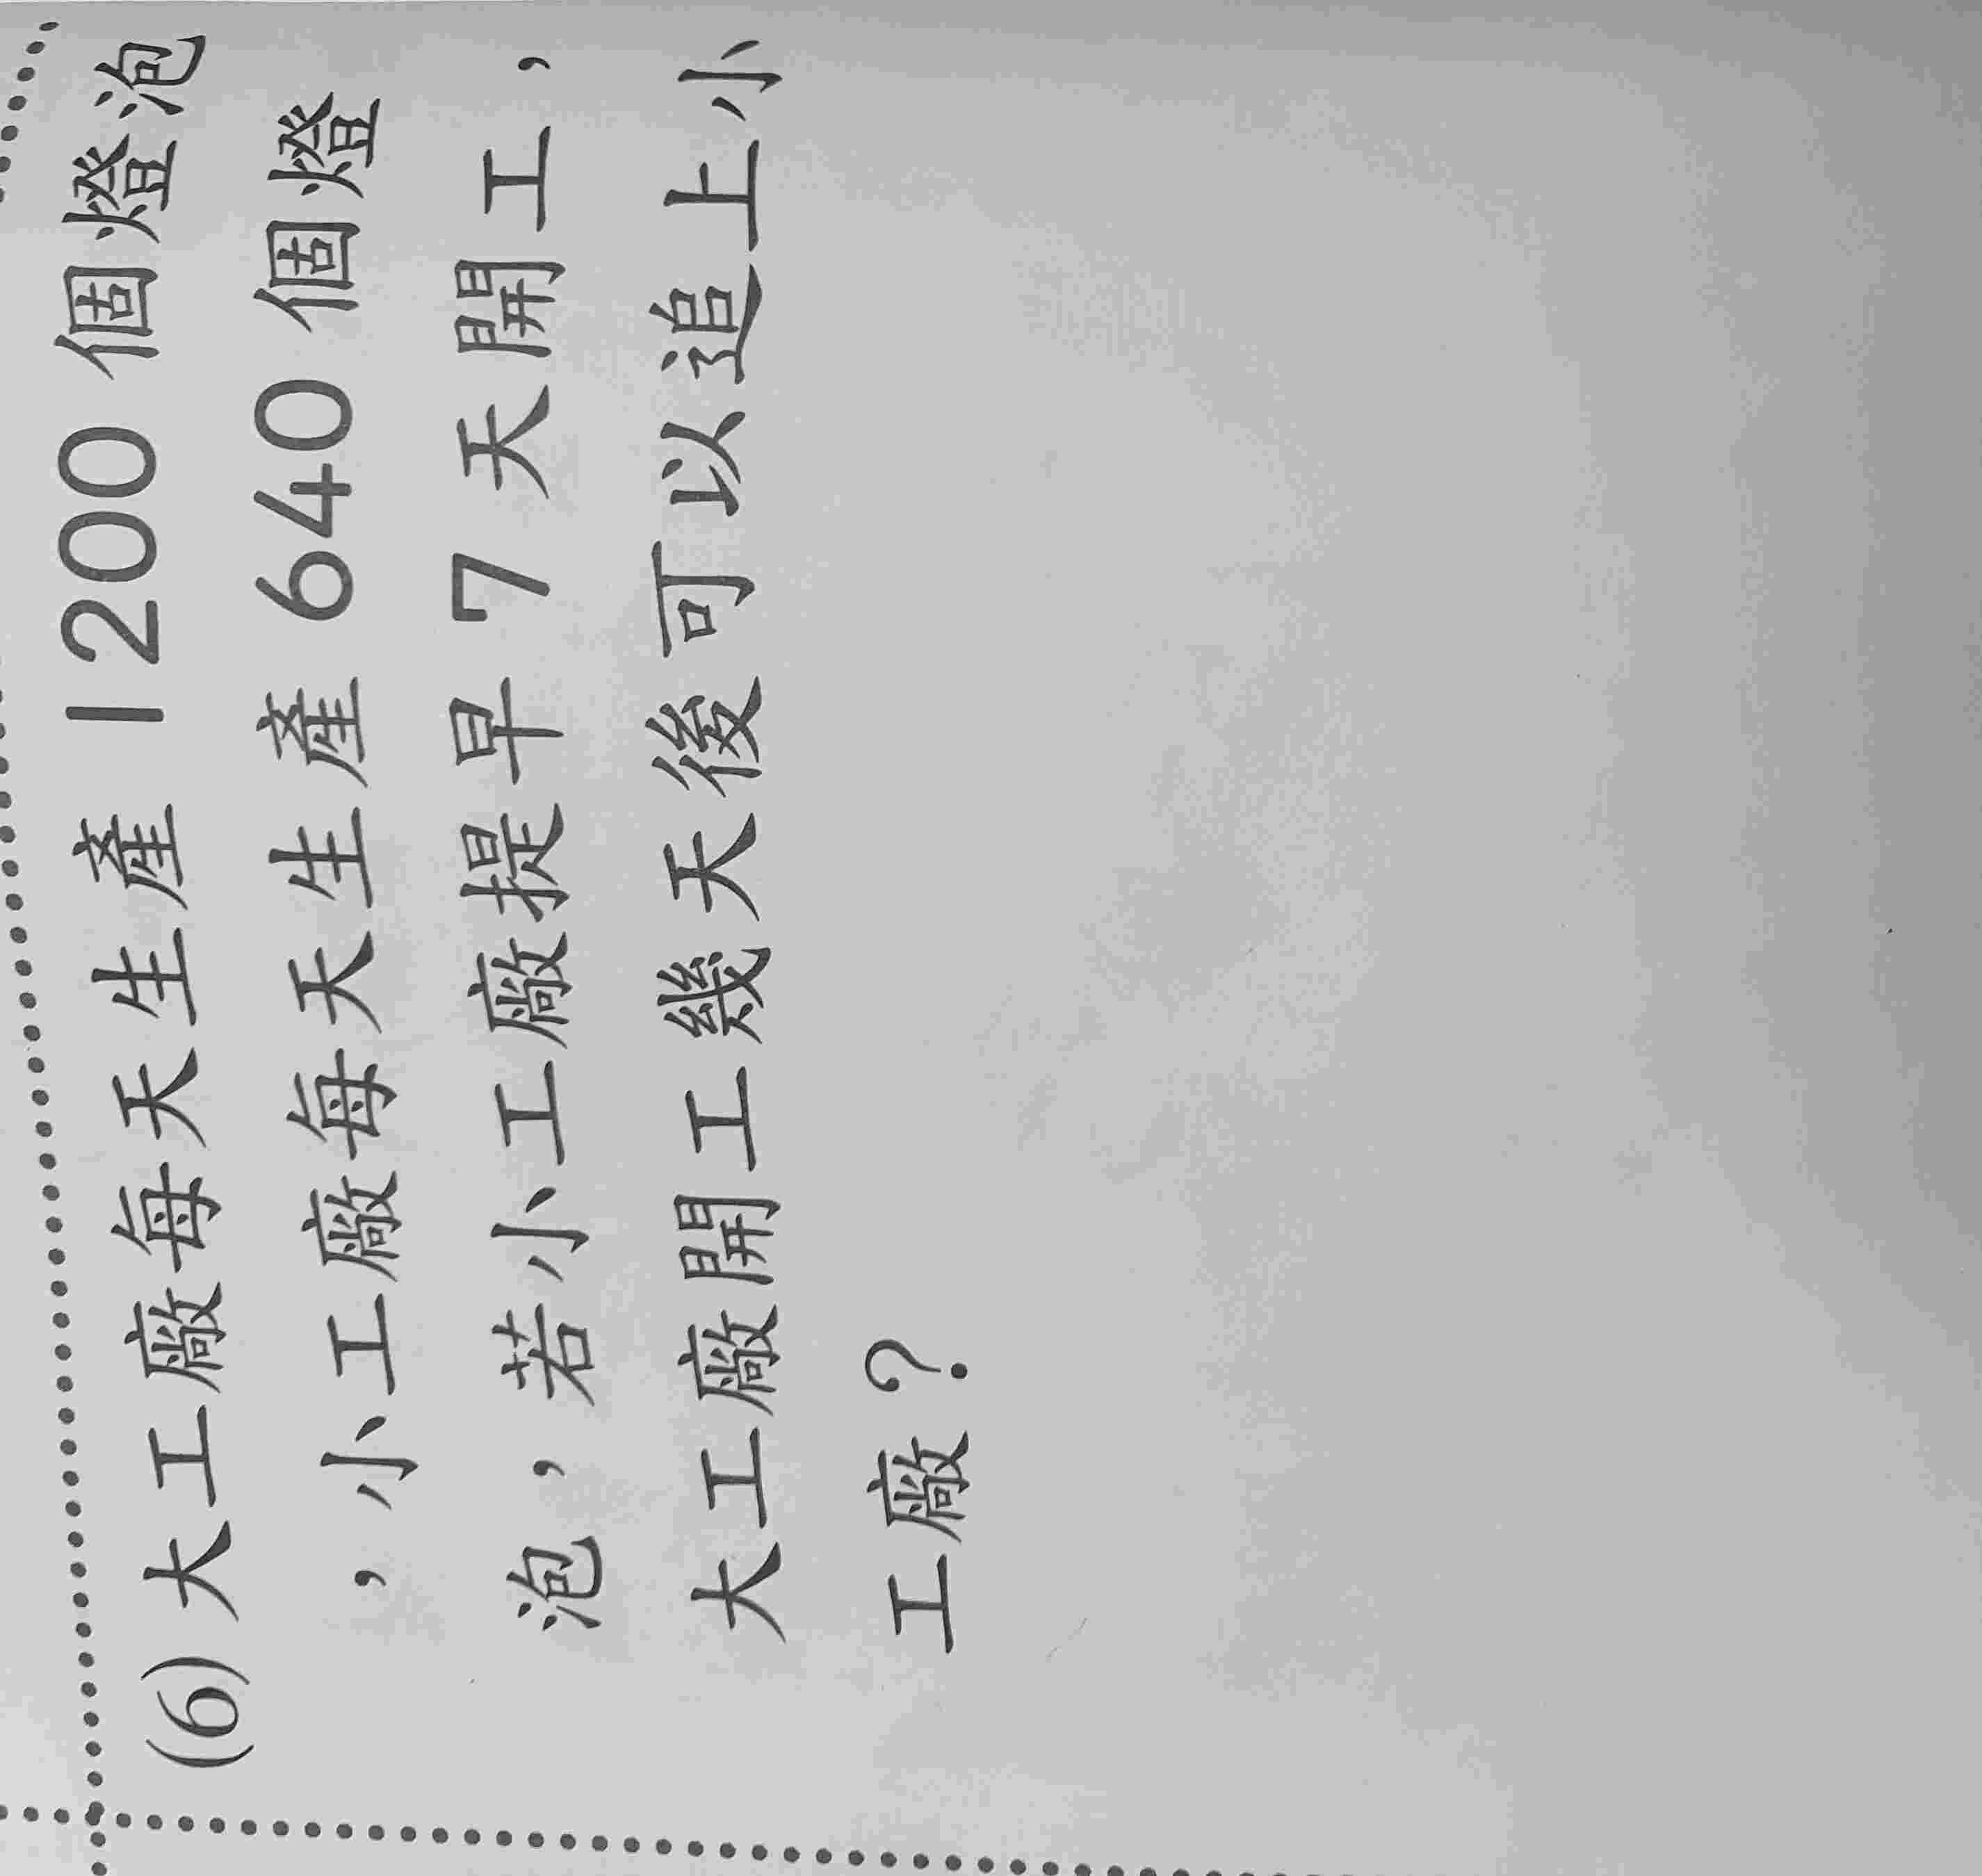 (6) 大工廠每天生產 1200 個燈泡
，小工廠每天生產 640 個燈
泡，若小工廠提早 7 天開工，
大工廠開工幾天後可以追上小
工廠？